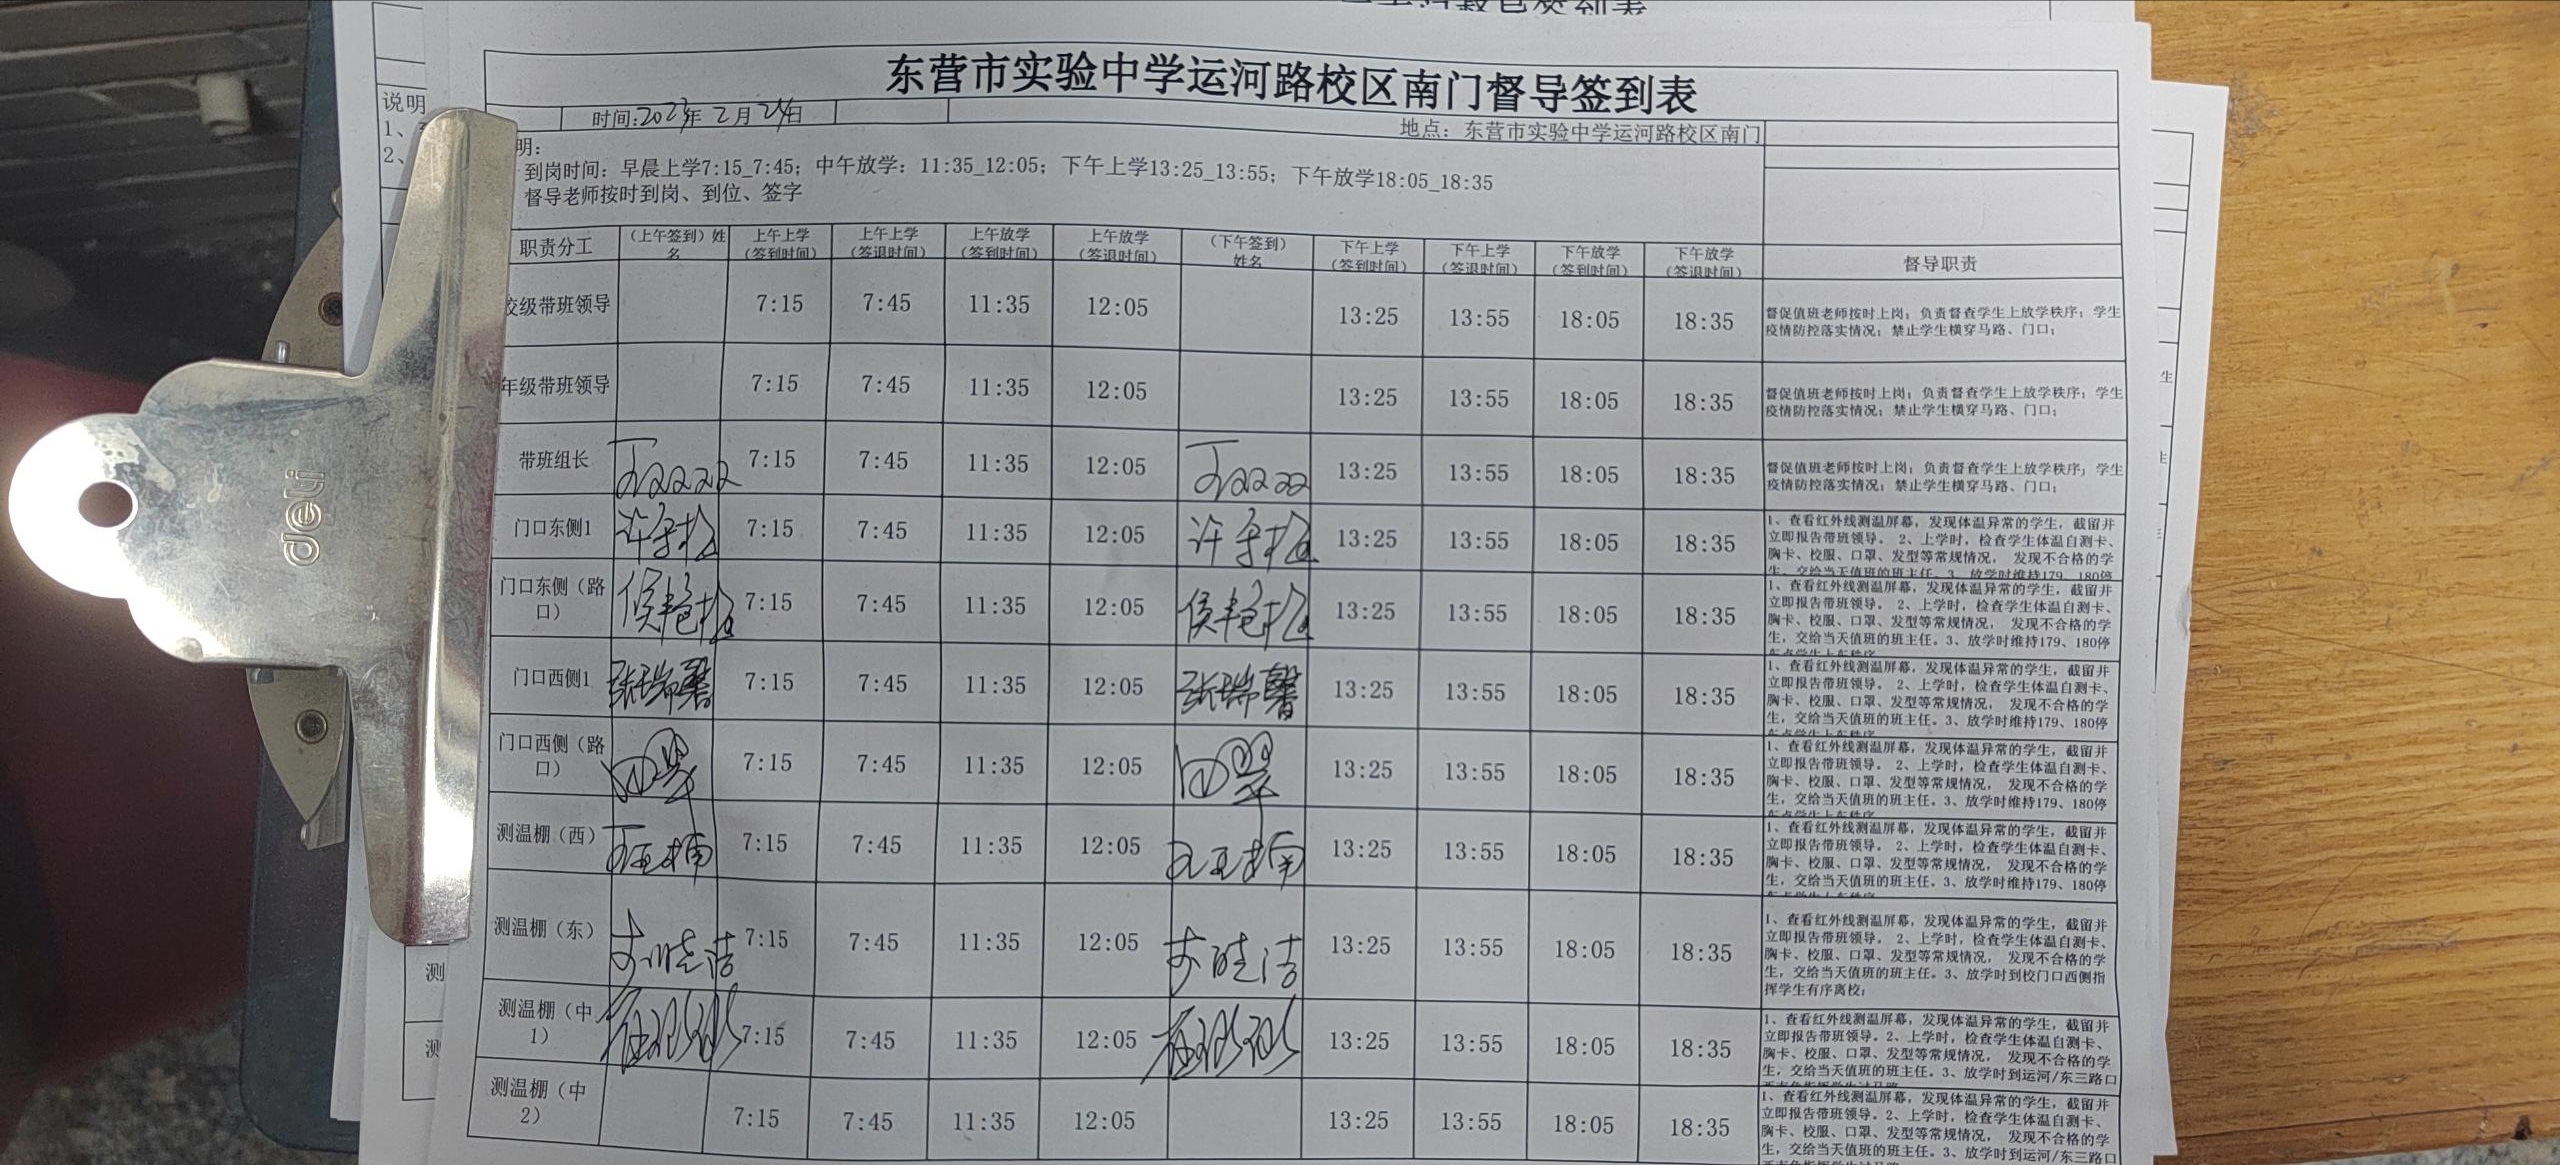 东营市实验中学运河路校区南门督导签到表
时间:2023年 2月24日
地点：东营市实验中学运河路校区南门
明：
到岗时间：早晨上学7:15_7:45；中午放学：11:35_12:05；下午上学13:25_13:55；下午放学18:05_18:35
督导老师按时到岗、到位、签字
职责分工 （上午签到）姓名 上午上学（签到时间） 上午上学（签退时间） 上午放学（签到时间） 上午放学（签退时间） （下午签到）姓名 下午上学（签到时间） 下午上学（签退时间） 下午放学（签到时间） 下午放学（签退时间） 督导职责
校级带班领导 7:15 7:45 11:35 12:05 13:25 13:55 18:05 18:35
督促值班老师按时上岗；负责督查学生上放学秩序；学生
疫情防控落实情况；禁止学生横穿马路、门口；
年级带班领导 7:15 7:45 11:35 12:05 13:25 13:55 18:05 18:35
督促值班老师按时上岗；负责督查学生上放学秩序；学生
疫情防控落实情况；禁止学生横穿马路、门口；
带班组长 7:15 7:45 11:35 12:05 13:25 13:55 18:05 18:35
督促值班老师按时上岗；负责督查学生上放学秩序；学生
疫情防控落实情况；禁止学生横穿马路、门口；
门口东侧1 7:15 7:45 11:35 12:05 13:25 13:55 18:05 18:35
1、查看红外线测温屏幕，发现体温异常的学生，截留并
立即报告带班领导。 2、上学时，检查学生体温自测卡、
胸卡、校服、口罩、发型等常规情况， 发现不合格的学
生，交给当天值班的班主任。3、放学时维持179、180停
门口东侧（路口） 7:15 7:45 11:35 12:05 13:25 13:55 18:05 18:35
1、查看红外线测温屏幕，发现体温异常的学生，截留并
立即报告带班领导。 2、上学时，检查学生体温自测卡、
胸卡、校服、口罩、发型等常规情况， 发现不合格的学
生，交给当天值班的班主任。3、放学时维持179、180停
车点学生上车秩序
门口西侧1 张瑞馨 7:15 7:45 11:35 12:05 张瑞馨 13:25 13:55 18:05 18:35
1、查看红外线测温屏幕，发现体温异常的学生，截留并
立即报告带班领导。 2、上学时，检查学生体温自测卡、
胸卡、校服、口罩、发型等常规情况， 发现不合格的学
生，交给当天值班的班主任。3、放学时维持179、180停
车点学生上车秩序
门口西侧（路口） 7:15 7:45 11:35 12:05 13:25 13:55 18:05 18:35
1、查看红外线测温屏幕，发现体温异常的学生，截留并
立即报告带班领导。 2、上学时，检查学生体温自测卡、
胸卡、校服、口罩、发型等常规情况， 发现不合格的学
生，交给当天值班的班主任。3、放学时维持179、180停
车点学生上车秩序
测温棚（西） 7:15 7:45 11:35 12:05 13:25 13:55 18:05 18:35
1、查看红外线测温屏幕，发现体温异常的学生，截留并
立即报告带班领导。 2、上学时，检查学生体温自测卡、
胸卡、校服、口罩、发型等常规情况， 发现不合格的学
生，交给当天值班的班主任。3、放学时维持179、180停
车点学生上车秩序
测温棚（东） 李晓洁 7:15 7:45 11:35 12:05 李晓洁 13:25 13:55 18:05 18:35
1、查看红外线测温屏幕，发现体温异常的学生，截留并
立即报告带班领导。 2、上学时，检查学生体温自测卡、
胸卡、校服、口罩、发型等常规情况， 发现不合格的学
生，交给当天值班的班主任。3、放学时到校门口西侧指
挥学生有序离校；
测温棚（中1） 7:15 7:45 11:35 12:05 13:25 13:55 18:05 18:35
1、查看红外线测温屏幕，发现体温异常的学生，截留并
立即报告带班领导。2、上学时，检查学生体温自测卡、
胸卡、校服、口罩、发型等常规情况， 发现不合格的学
生，交给当天值班的班主任。3、放学时到运河/东三路口
测温棚（中2） 7:15 7:45 11:35 12:05 13:25 13:55 18:05 18:35
1、查看红外线测温屏幕，发现体温异常的学生，截留并
立即报告带班领导。2、上学时，检查学生体温自测卡、
胸卡、校服、口罩、发型等常规情况， 发现不合格的学
生，交给当天值班的班主任。3、放学时到运河/东三路口
说明
1、
2、
测
测
deli